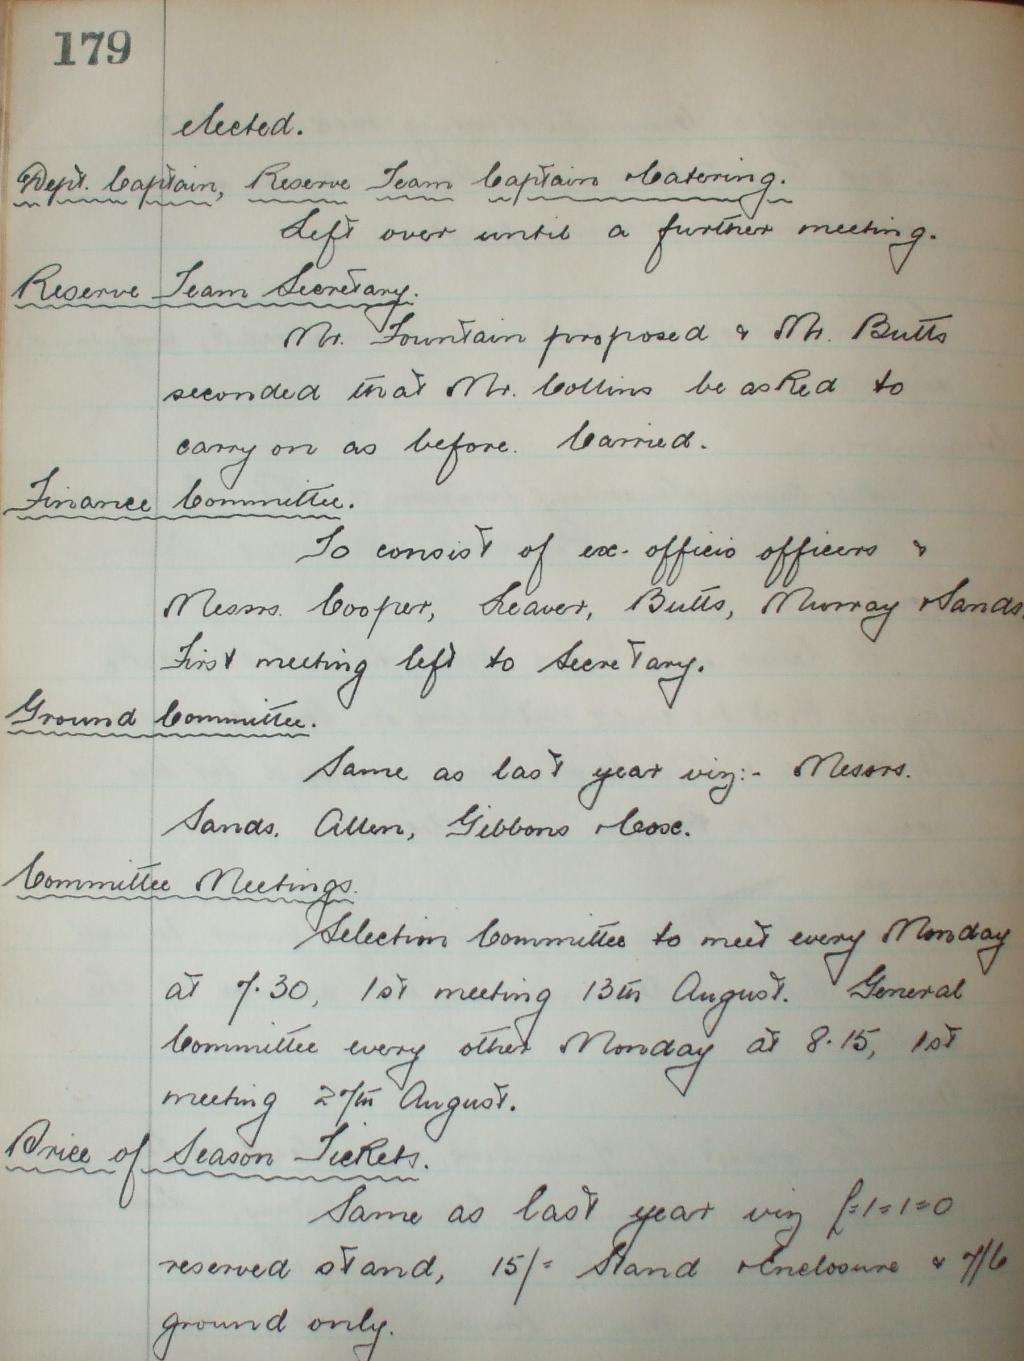 179
elected.
Dept. Captain, Reserve Team Captain & Catering.
Left over until a further meeting.
Reserve Team Secretary.
Mr. Fountain proposed & Mr. Butts
seconded that Mr. Collins be asked to
carry on as before. Carried.
Finance Committee.
To consist of ex-officio officers &
Messrs. Cooper, Leaver, Butts, Murray & Sands.
First meeting left to Secretary.
Ground Committee.
Same as last year viz:- Messrs.
Sands, Allen, Gibbons & Cox.
Committee Meetings.
Selection Committee to meet every Monday
at 7.30, 1st meeting 13th August. General
Committee every other Monday at 8.15, 1st
meeting 27th August.
Price of Season Tickets.
Same as last year viz £=1=1=0
reserved stand, 15/= Stand & Enclosure & 7/6
ground only.